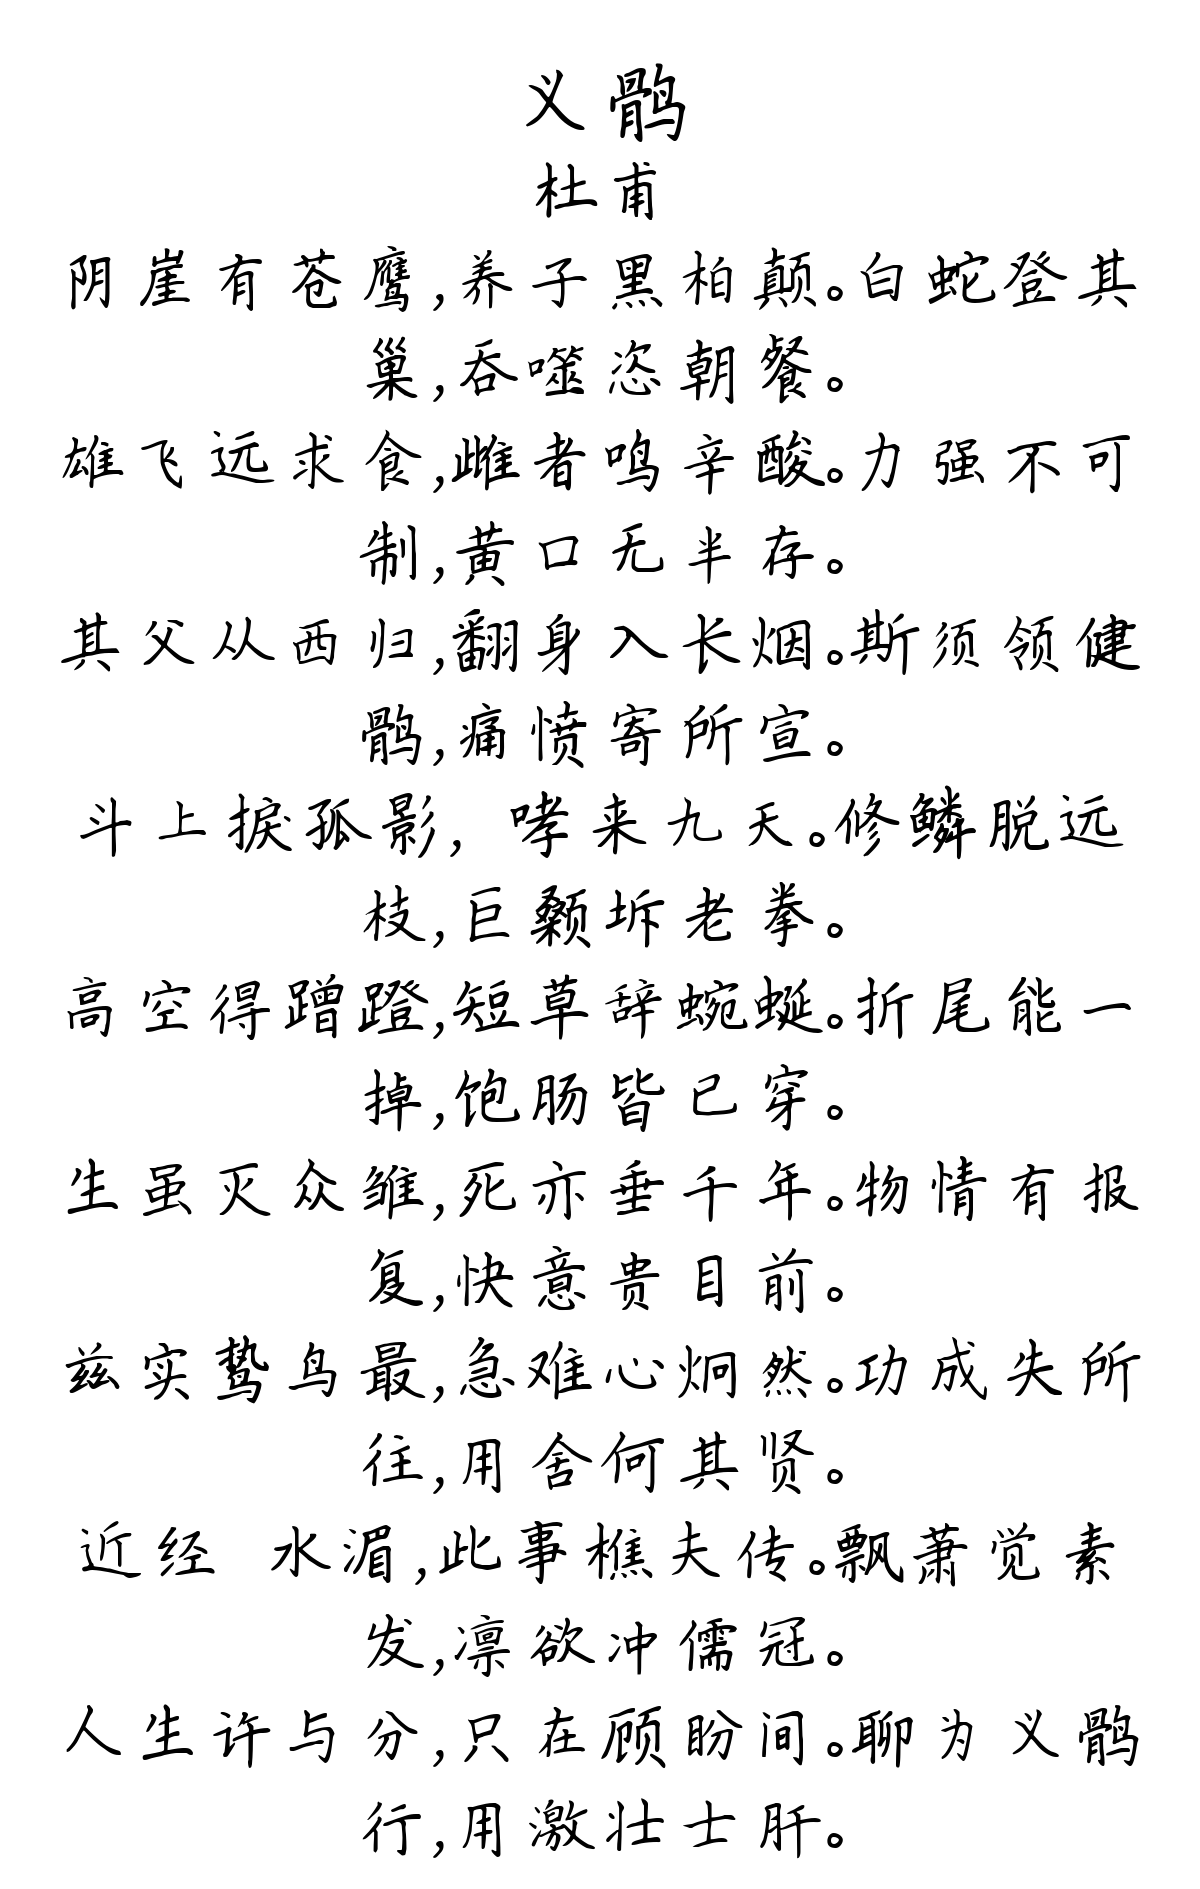 义鹘
杜甫
阴崖有苍鹰,养子黑柏颠。白蛇登其
巢,吞噬恣朝餐。
雄飞远求食,雌者鸣辛酸。力强不可
制,黄口无半存。
其父从西归,翻身入长烟。斯须领健
鹘,痛愤寄所宣。
斗上捩孤影, 哮来九天。修鳞脱远
枝,巨颡坼老拳。
高空得蹭蹬,短草辞蜿蜒。折尾能一
掉,饱肠皆已穿。
生虽灭众雏,死亦垂千年。物情有报
复,快意贵目前。
兹实鸷鸟最,急难心炯然。功成失所
往,用舍何其贤。
近经 水湄,此事樵夫传。飘萧觉素
发,凛欲冲儒冠。
人生许与分,只在顾盼间。聊为义鹘
行,用激壮士肝。